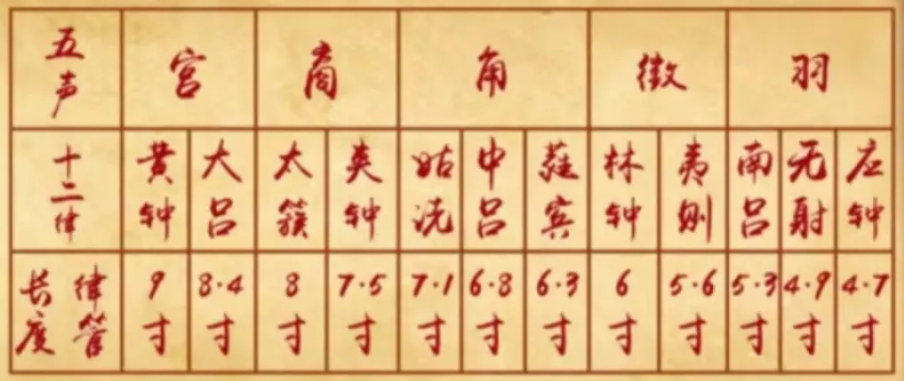 五声 宫 商 角 徵 羽
十二律 黄钟 大吕 太簇 夹钟 姑洗 中吕 蕤宾 林钟 夷则 南吕 无射 应钟
律管长度 9寸 8.4寸 8寸 7.5寸 7.1寸 6.8寸 6.3寸 6寸 5.6寸 5.3寸 4.9寸 4.7寸